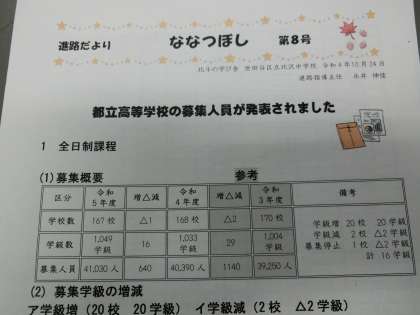 進路だより ななつぼし 第8号
北斗の学び舎 世田谷区立北沢中学校 令和4年10月24日
進路指導主任
都立高等学校の募集人員が発表されました
1 全日制課程
(1)募集概要 参考
区分 令和5年度 増△減 令和4年度 増△減 令和3年度 備考
学校数 167校 △1 168校 △2 170校
学級数 1,049学級 16 1,033学級 29 1,004学級
募集人員 41,030人 640 40,390人 1140 39,250人
学級増 20校 20学級
学級減 2校 △2学級
募集停止 1校 △2学級
計 16学級
(2) 募集学級の増減
ア学級増(20校 20学級) イ学級減(2校 △2学級)